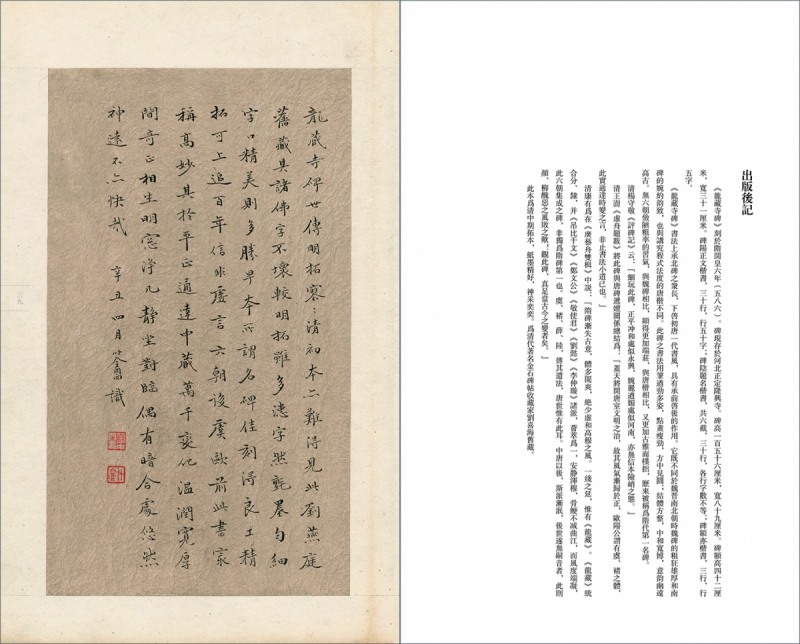 出版後記
《龍藏寺碑》刻於隋開皇六年（五八六）。碑現存於河北正定隆興寺。碑高一百五十六厘米，寬八十九厘米。碑額高四十二厘
米，寬三十一厘米。碑陽正文楷書，三十行，行五十字；碑陰題名楷書，共六截，三十行，各行字數不等；碑額亦楷書，三行，行
五字。
《龍藏寺碑》書法上承北碑之衆長，下啓初唐一代書風，具有承前啓後的作用。它既不同於魏晉南北朝時魏碑的粗狂雄厚和南
碑的婉約韵致，也與講究程式法度的唐楷不同。此碑之書法用筆遒勁多姿，點畫瘦勁，方中見圓；結體方整，中和寬博，意韵幽遠
高古。無六朝儉陋粗率的習氣，與魏碑相比，顯得更加端莊，與唐楷相比，又更加古雅而樸拙，歷來被稱爲隋代第一名碑。
清楊守敬《評碑記》云：「細玩此碑，正平冲和處似永興，婉麗遒媚處似河南，亦無信本險峭之態。」
清王澍《虛舟題跋》將此碑與唐碑遞嬗關係總結爲：「蓋天將開唐室文明之治，故其風氣漸歸於正，歐陽公謂有虞、褚之體，
此實通達時變之言，非止書法小道已也。」
清康有爲在《廣藝舟雙楫》中説：「隋碑漸失古意，體多闓爽，絶少虛和高穆之風，一綫之延，惟有《龍藏》。《龍藏》統
合分、隸，并《吊比干文》《鄭文公》《敬使君》《劉懿》《李仲璇》諸派，薈萃爲一，安静渾穆，骨鯁不减曲江，而風度端凝，
此六朝集成之碑，非獨爲隋碑第一也。虞、褚、薛、陸，傳其遺法，唐世惟有此耳。中唐以後，斯派漸泯，後世遂無嗣音者，此則
顔、柳醜惡之風敗之歟！觀此碑，真足當古今之變者矣。」
此本爲清中期拓本，紙墨精好，神采奕奕。爲清代著名金石碑帖收藏家劉喜海舊藏。
龍藏寺碑世傳明拓寥寥清初本亦難得見此劉燕庭
舊藏具諸佛字不壞較明拓雖多漶字然氈墨勻細
字口精美則多勝早本所謂名碑佳刻得良工精
拓可上追百年信非虛言六朝後虞歐前此書家
稱高妙其於平正通達中藏萬千變化溫潤寬厚
間奇正相生明窓浄几静坐對臨偶有暗合處悠然
神遠不亦快哉
辛丑四月 識